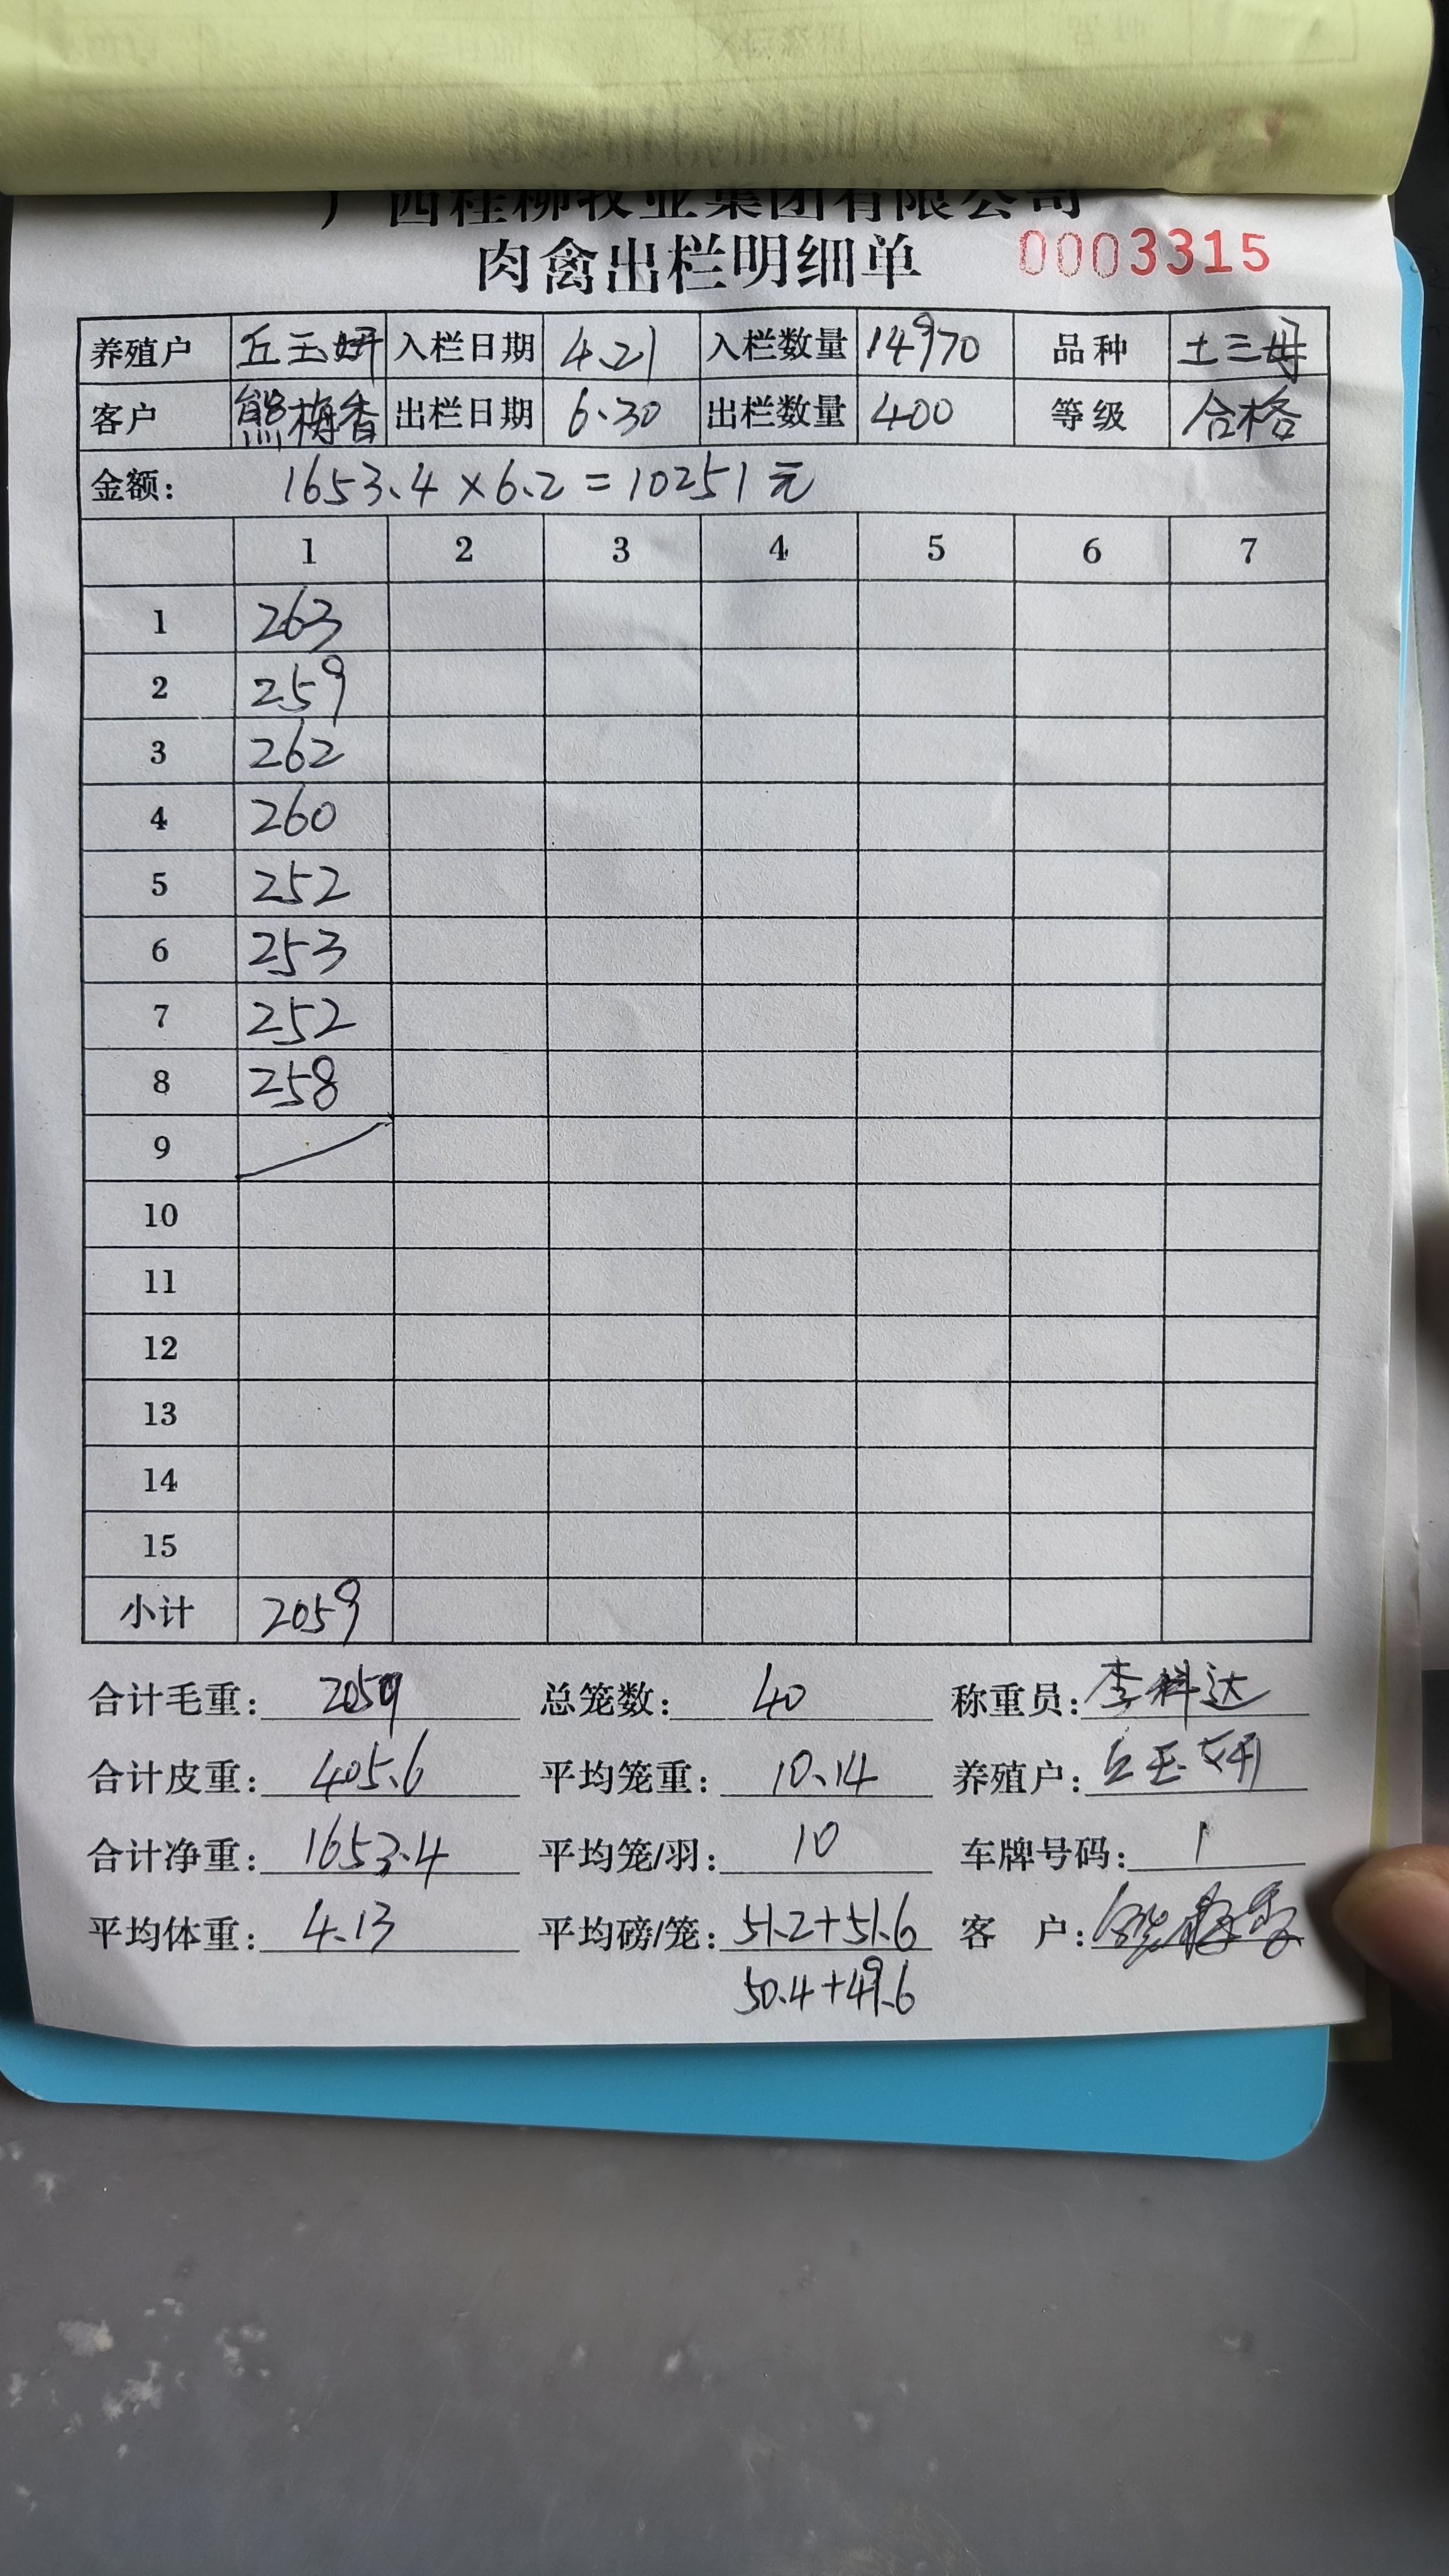 广西桂柳牧业集团有限公司
肉禽出栏明细单 0003315
养殖户 丘玉妍 入栏日期 4.21 入栏数量 14970 品种 土三母
客户 熊梅香 出栏日期 6.30 出栏数量 400 等级 合格
金额: 1653.4×6.2=10251元
1 2 3 4 5 6 7
1 263
2 259
3 262
4 260
5 252
6 253
7 252
8 258
9
10
11
12
13
14
15
小计 2059
合计毛重: 2059 总笼数: 40 称重员: 李科达
合计皮重: 405.6 平均笼重: 10.14 养殖户: 丘玉妍
合计净重: 1653.4 平均笼/羽: 10 车牌号码: 1
平均体重: 4.13 平均磅/笼: 51.2+51.6 客户: 熊梅香
50.4+49.6